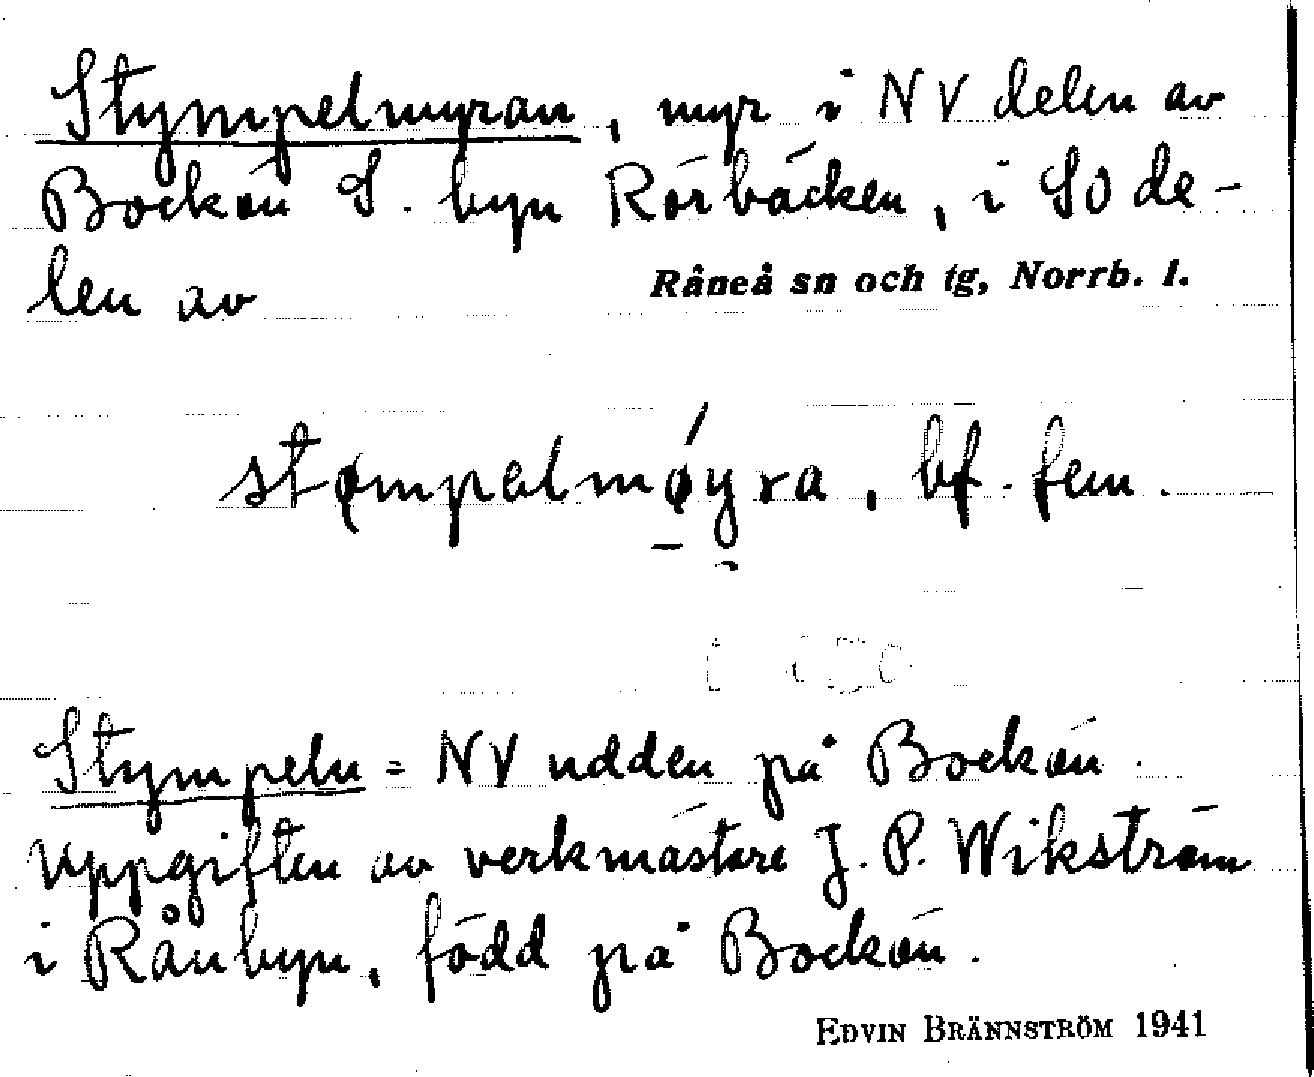 Stympelmyran, myr i NV delen av
Bockön S. byn Rörbäcken, i SO de-
len av
Råneå sn och tg, Norrb. l.
stømpəlmǿy̯ra, bf. fem.
Stympeln = NV udden på Bockön.
Uppgiften av verkmästare J. P. Wikström
i Rånbyn, född på Bockön.
EDVIN BRÄNNSTRÖM 1941